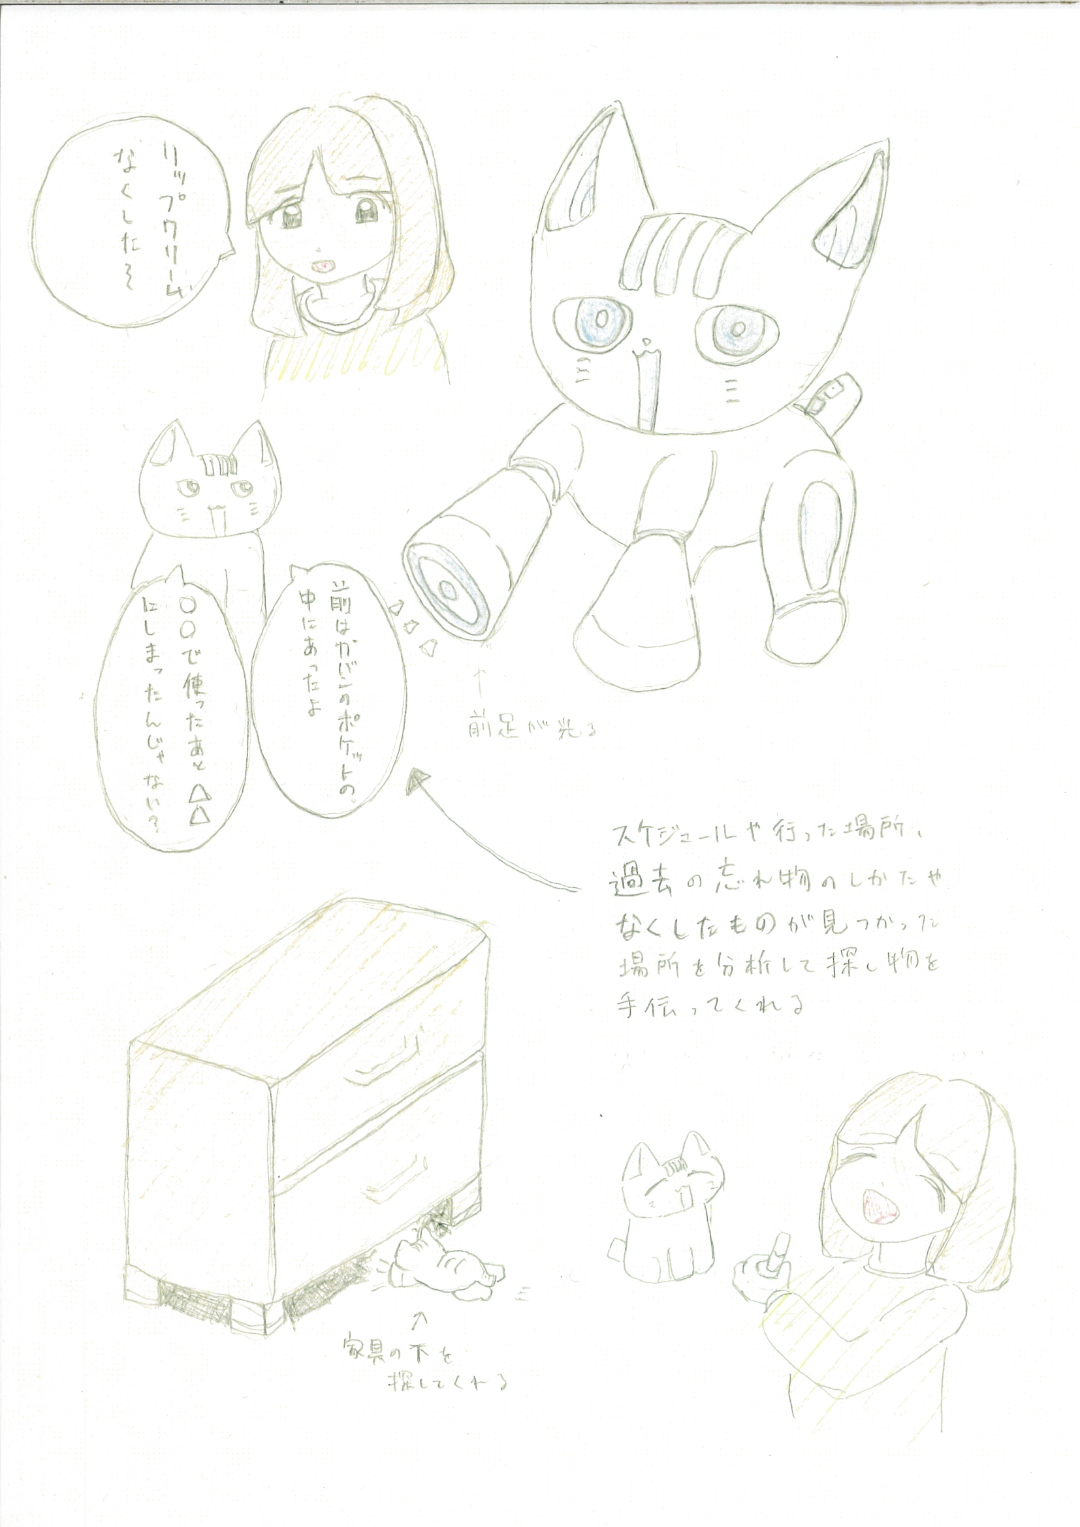 リップクリーム
なくした〜
前はカバンのポケットの
中にあったよ
○○で使ったあと△△
にしまったんじゃない?
前足が光る
スケジュールや行った場所、
過去の忘れ物のしかたや
なくしたものが見つかった
場所を分析して探し物を
手伝ってくれる
家具の下を
探してくれる